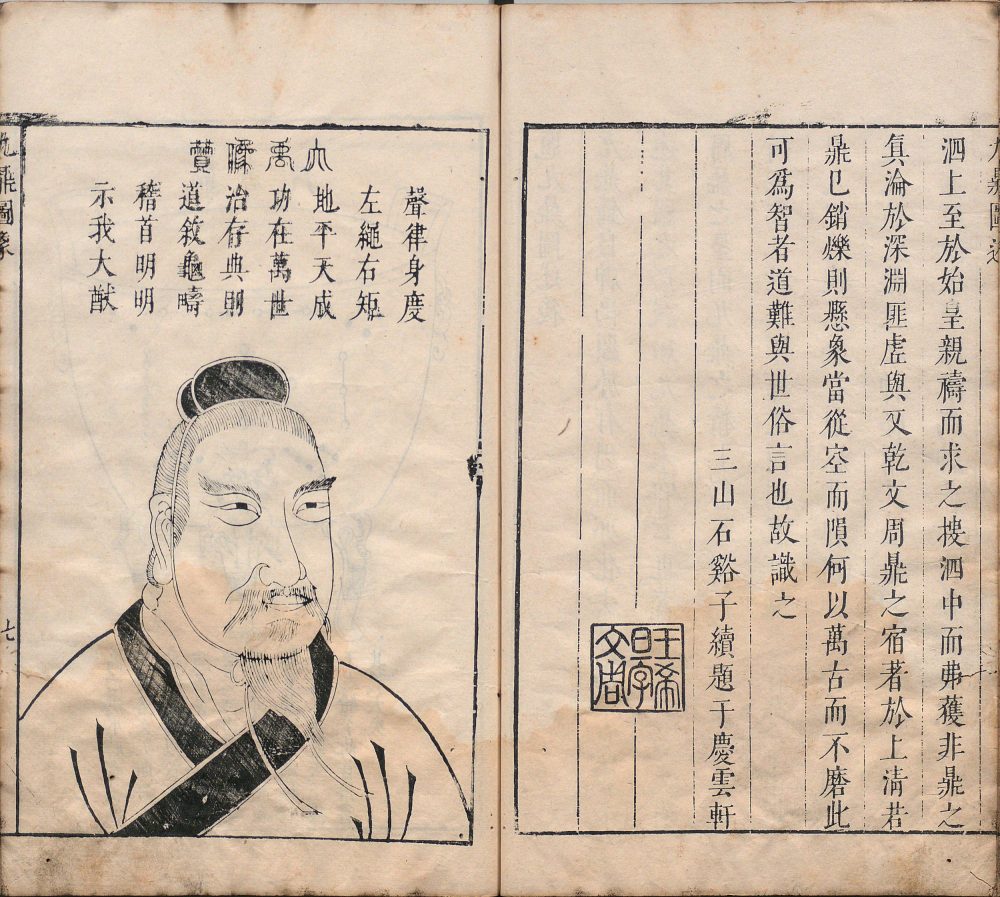 九鼎圖述
泗上至於始皇親禱而求之搜泗中而弗獲非鼎之
真淪於深淵匪虛與又乾文周鼎之宿著於上清若
鼎已銷爍則懸象當從空而隕何以萬古而不磨此
可爲智者道難與世俗言也故識之
三山石谿子續題于慶雲軒
王希
日字
文
大禹像贊
聲律身度
左繩右矩
地平天成
功在萬世
治存典則
道敘龜疇
稽首明明
示我大猷
九鼎圖象
七